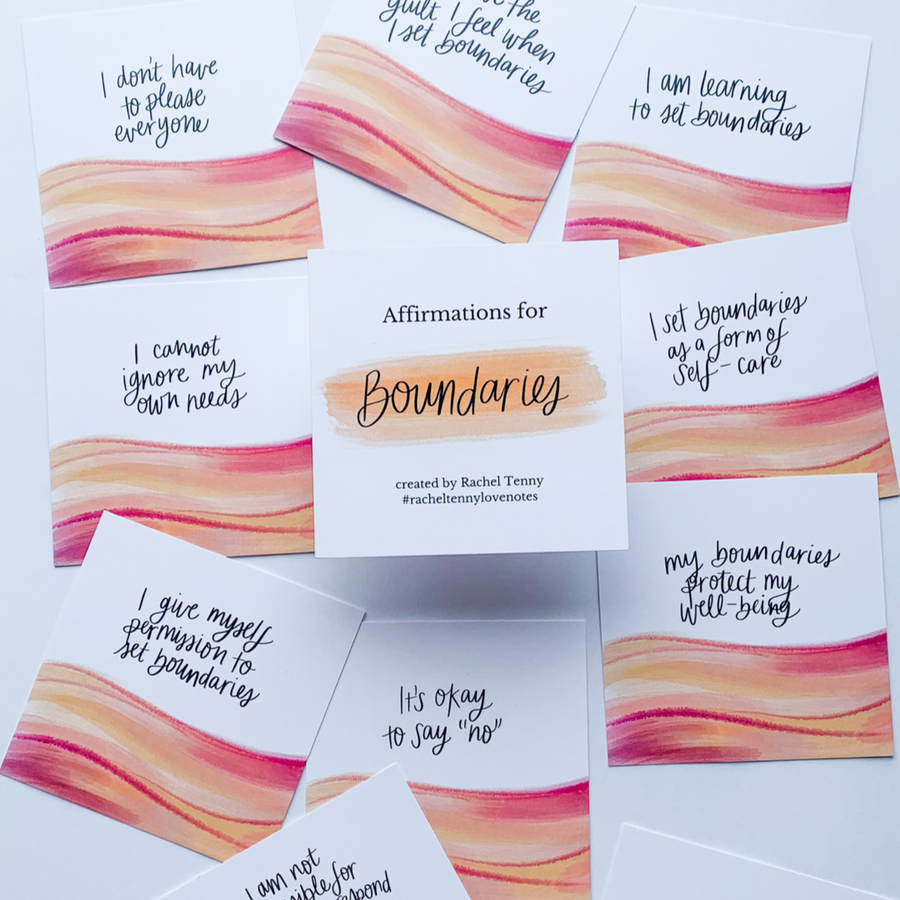 I don't have
to please
everyone
the
guilt I feel when
I set boundaries
I am learning
to set boundaries
I cannot
ignore my
own needs
Affirmations for
Boundaries
created by Rachel Tenny
#racheltennylovenotes
I set boundaries
as a form of
self-care
I give myself
permission to
set boundaries
It's okay
to say "no"
my boundaries
protect my
well-being
I am not
for